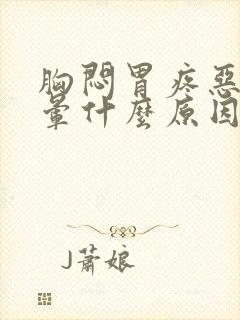 胸悶胃疼惡
暈什麼原因
J蕭娘